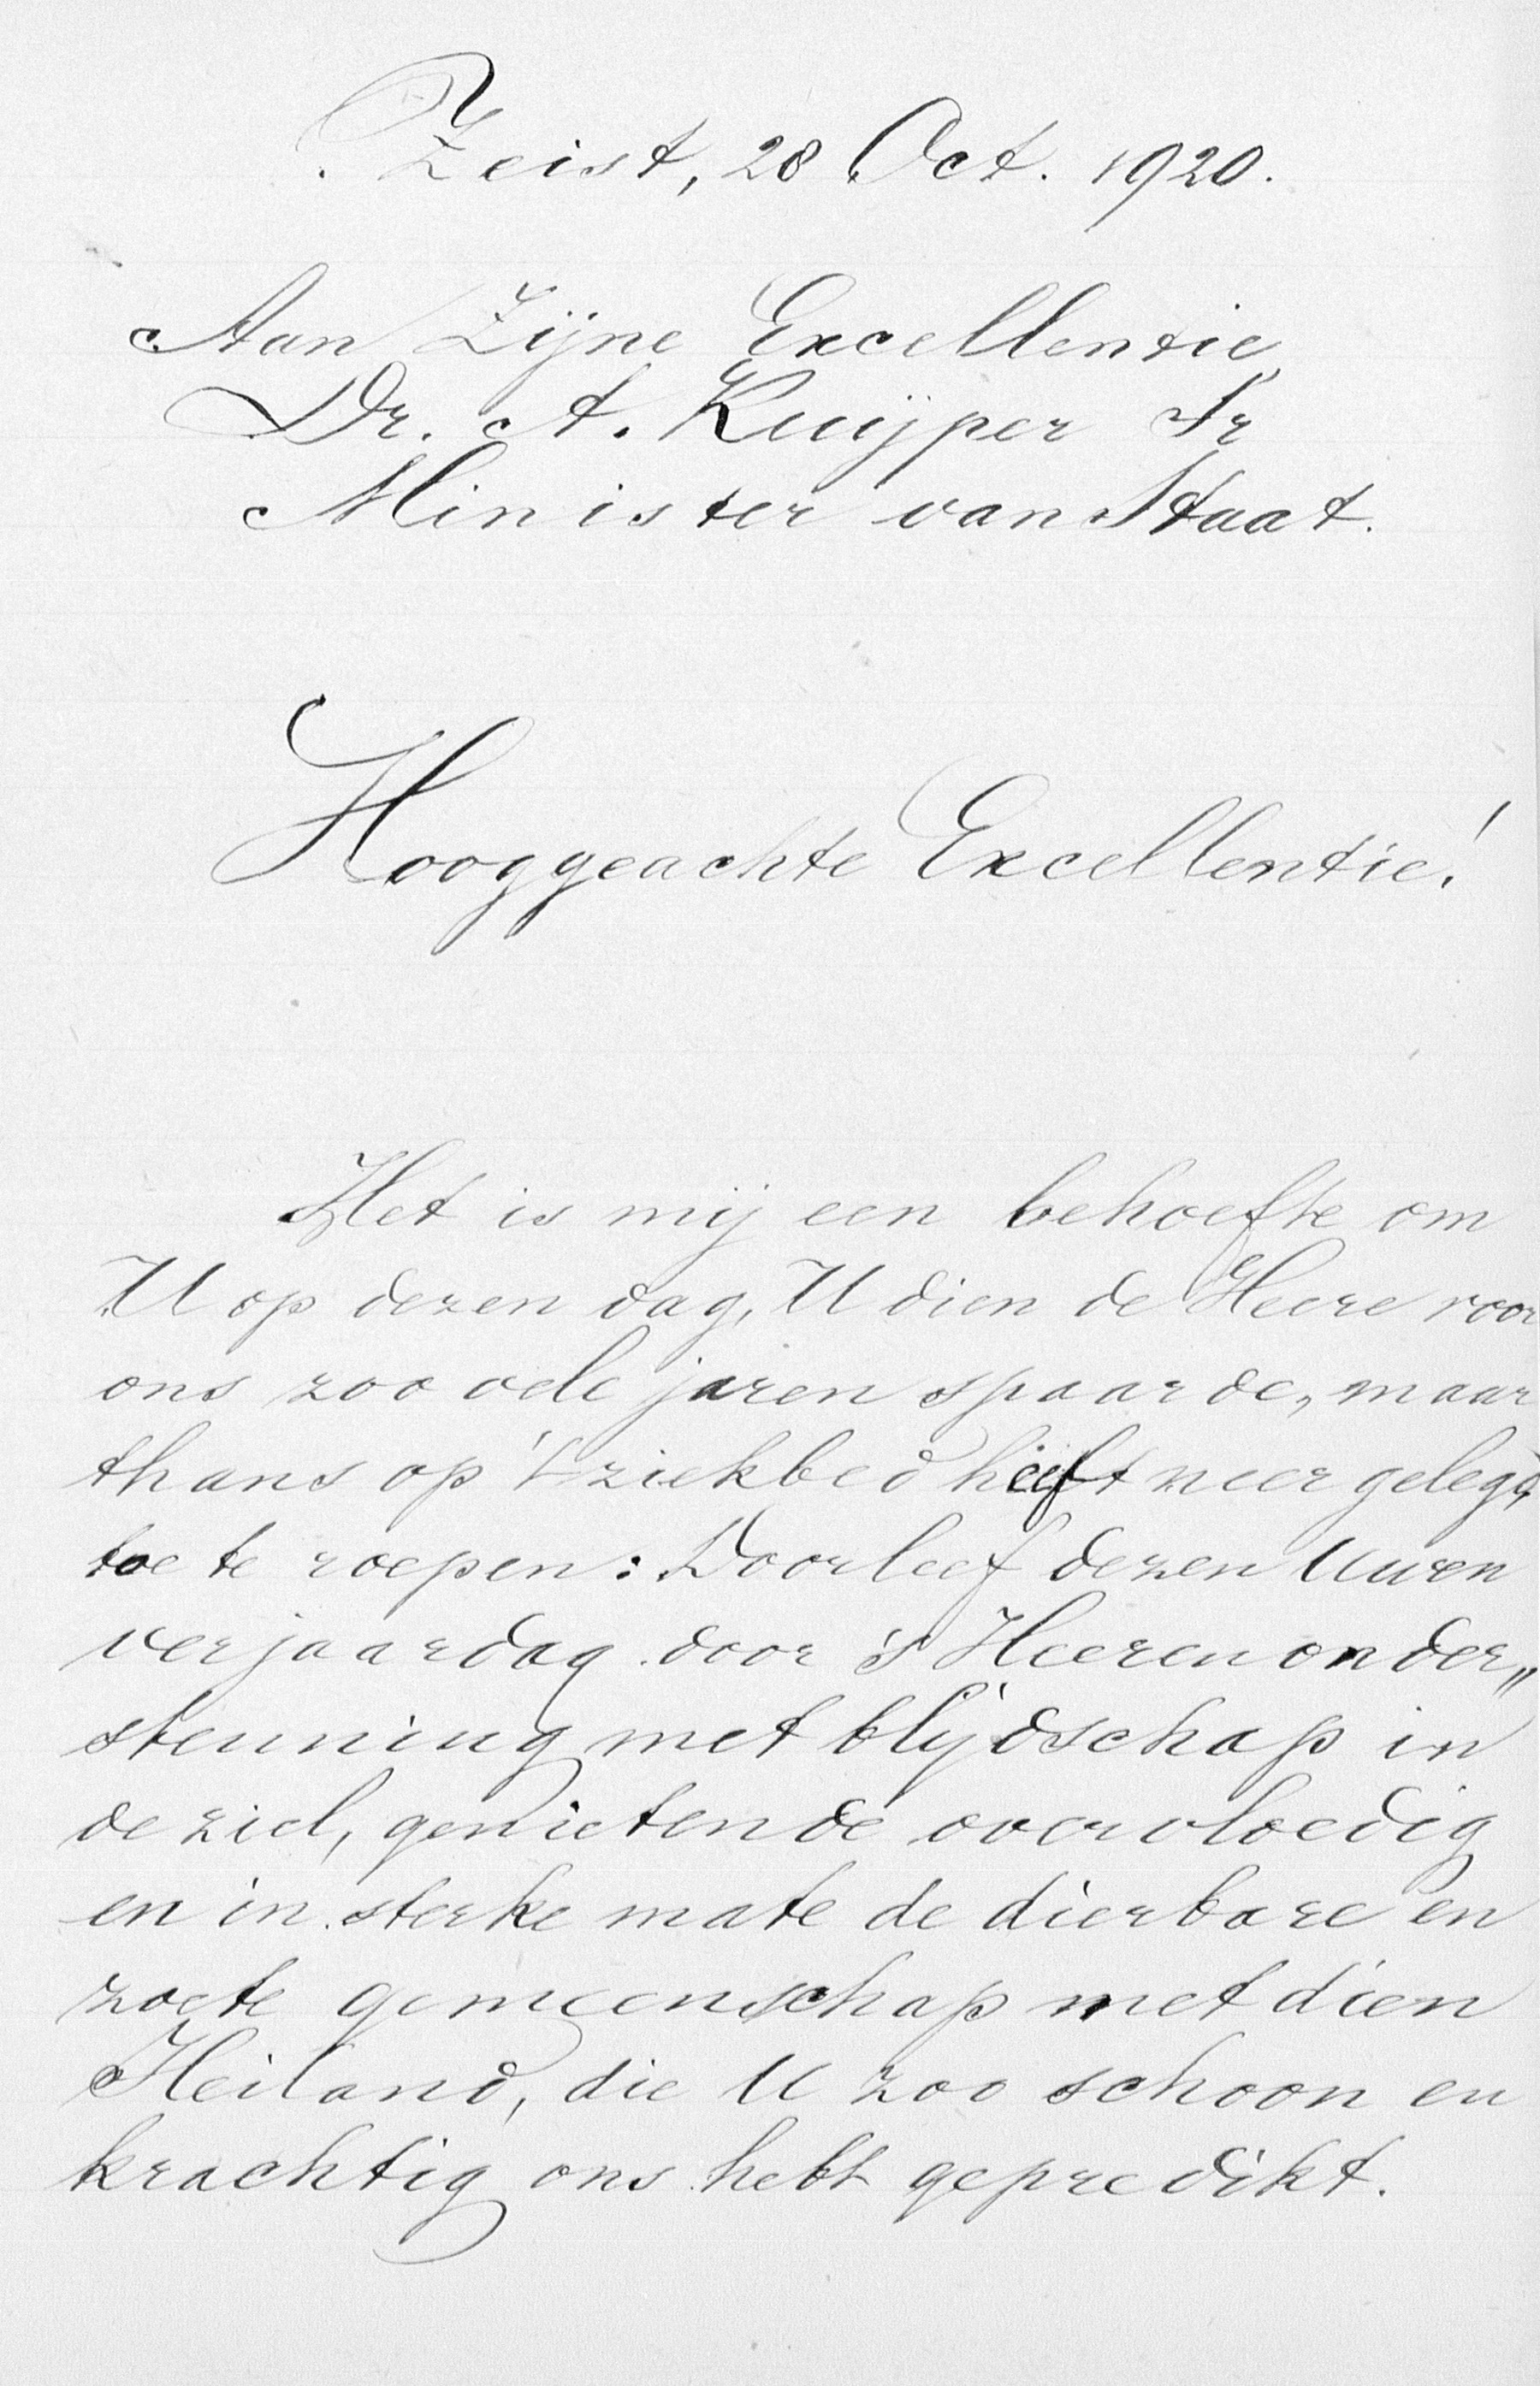 Zeist, 28 Oct. 1920.
Aan Zijne Excellentie
Dr. A. Kuijper Sr
Minister van Staat.
Hooggeachte Excellentie!
Het is mij een behoefte om
U op dezen dag, U dien de Heere voor
ons zoo vele jaren spaarde, maar
thans op 't ziekbed heeft neergelegd,
toe te roepen: Doorleef dezen Uwen
verjaardag door 's Heeren onder„
steuning met blijdschap in
de ziel, genietende overvloedig
en in sterke mate de dierbare en
zoete gemeenschap met dien
Heiland, die U zoo schoon en
krachtig ons hebt gepredikt.